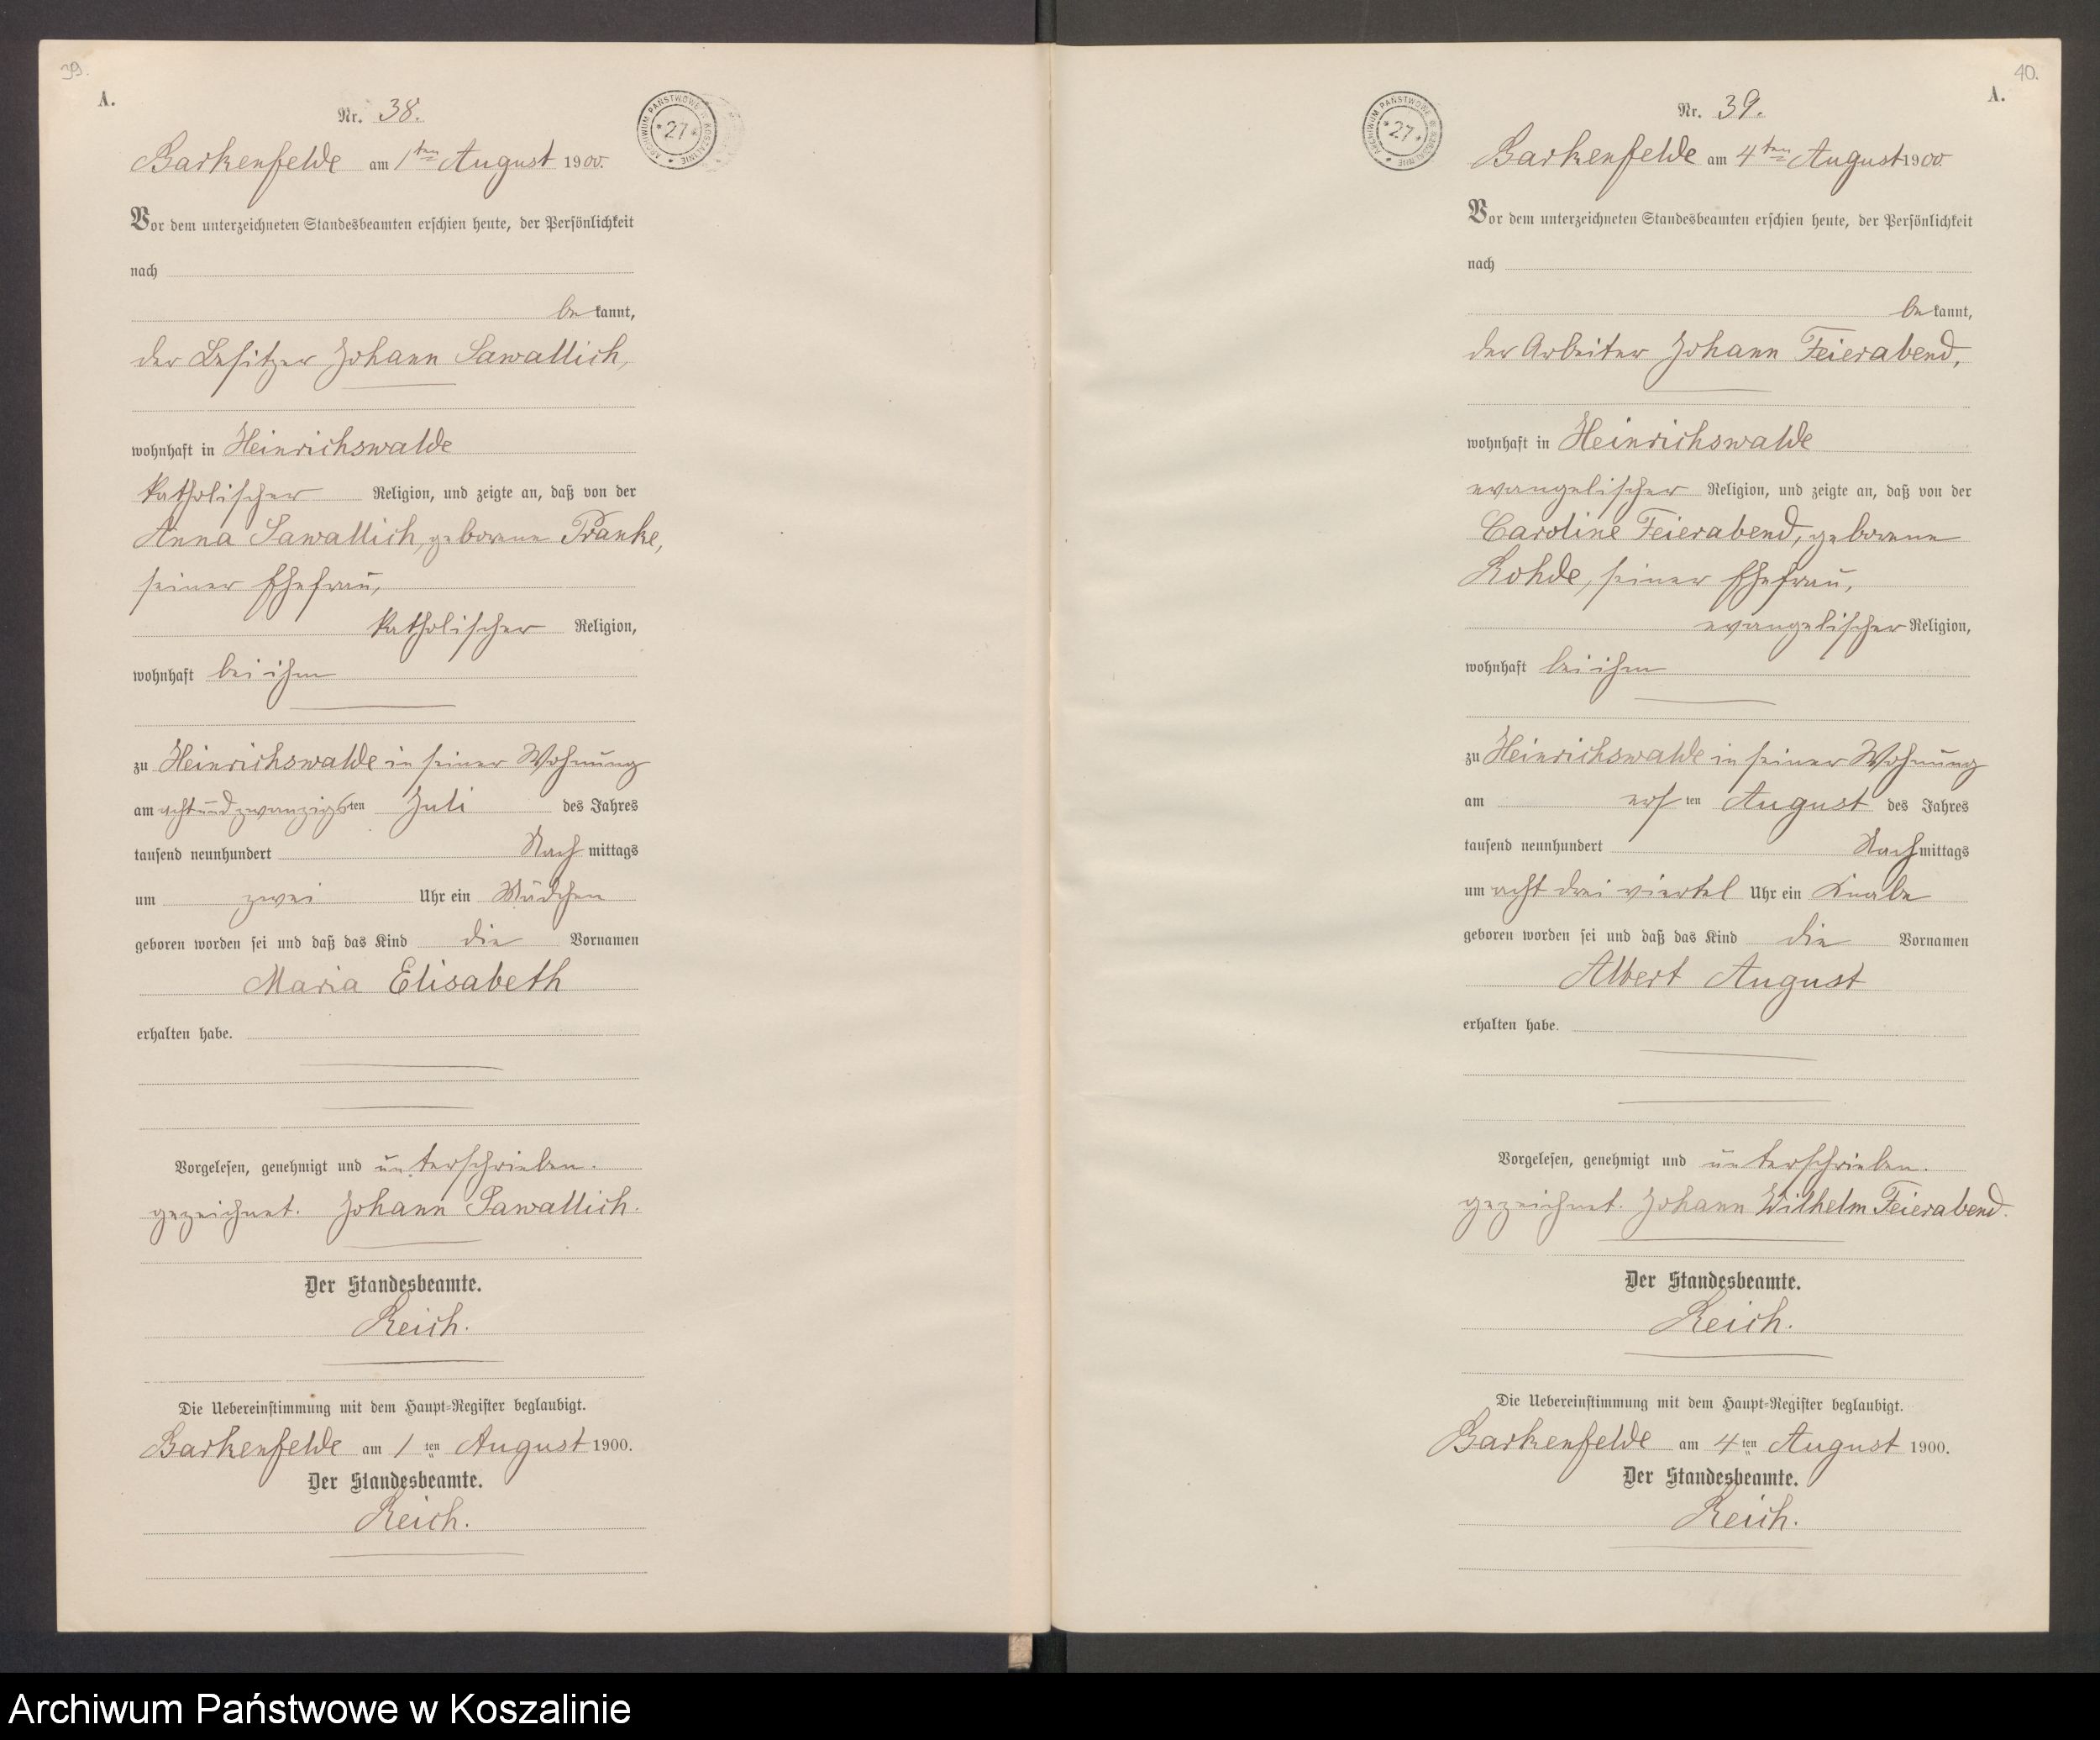 39.
A.
Nr. 38.
ARCHIWUM PAŃSTWOWE W KOSZALINIE
* 27 *
Barkenfelde am 1ten August 1900.
Vor dem unterzeichneten Standesbeamten erschien heute, der Persönlichkeit
nach
bekannt,
der Besitzer Johann Sawallich,
wohnhaft in Heinrichswalde
katholischer Religion, und zeigte an, daß von der
Anna Sawallich, geborene Pranke,
seiner Ehefrau,
katholischer Religion,
wohnhaft bei ihm
zu Heinrichswalde in seiner Wohnung
am achtundzwanzigsten Juli des Jahres
tausend neunhundert Nachmittags
um zwei Uhr ein Mädchen
geboren worden sei und daß das Kind die Vornamen
Maria Elisabeth
erhalten habe.
Vorgelesen, genehmigt und unterschrieben.
gezeichnet. Johann Sawallich.
Der Standesbeamte.
Reich.
Die Uebereinstimmung mit dem Haupt-Register beglaubigt.
Barkenfelde am 1ten August 1900.
Der Standesbeamte.
Reich.
40.
A.
Nr. 39.
ARCHIWUM PAŃSTWOWE W KOSZALINIE
* 27 *
Barkenfelde am 4ten August 1900
Vor dem unterzeichneten Standesbeamten erschien heute, der Persönlichkeit
nach
bekannt,
der Arbeiter Johann Feierabend,
wohnhaft in Heinrichswalde
evangelischer Religion, und zeigte an, daß von der
Caroline Feierabend, geborene
Rohde, seiner Ehefrau,
evangelischer Religion,
wohnhaft bei ihm
zu Heinrichswalde in seiner Wohnung
am ersten August des Jahres
tausend neunhundert Nachmittags
um acht drei viertel Uhr ein Knabe
geboren worden sei und daß das Kind die Vornamen
Albert August
erhalten habe.
Vorgelesen, genehmigt und unterschrieben.
gezeichnet. Johann Wilhelm Feierabend.
Der Standesbeamte.
Reich.
Die Uebereinstimmung mit dem Haupt-Register beglaubigt.
Barkenfelde am 4ten August 1900.
Der Standesbeamte.
Reich.
Archiwum Państwowe w Koszalinie